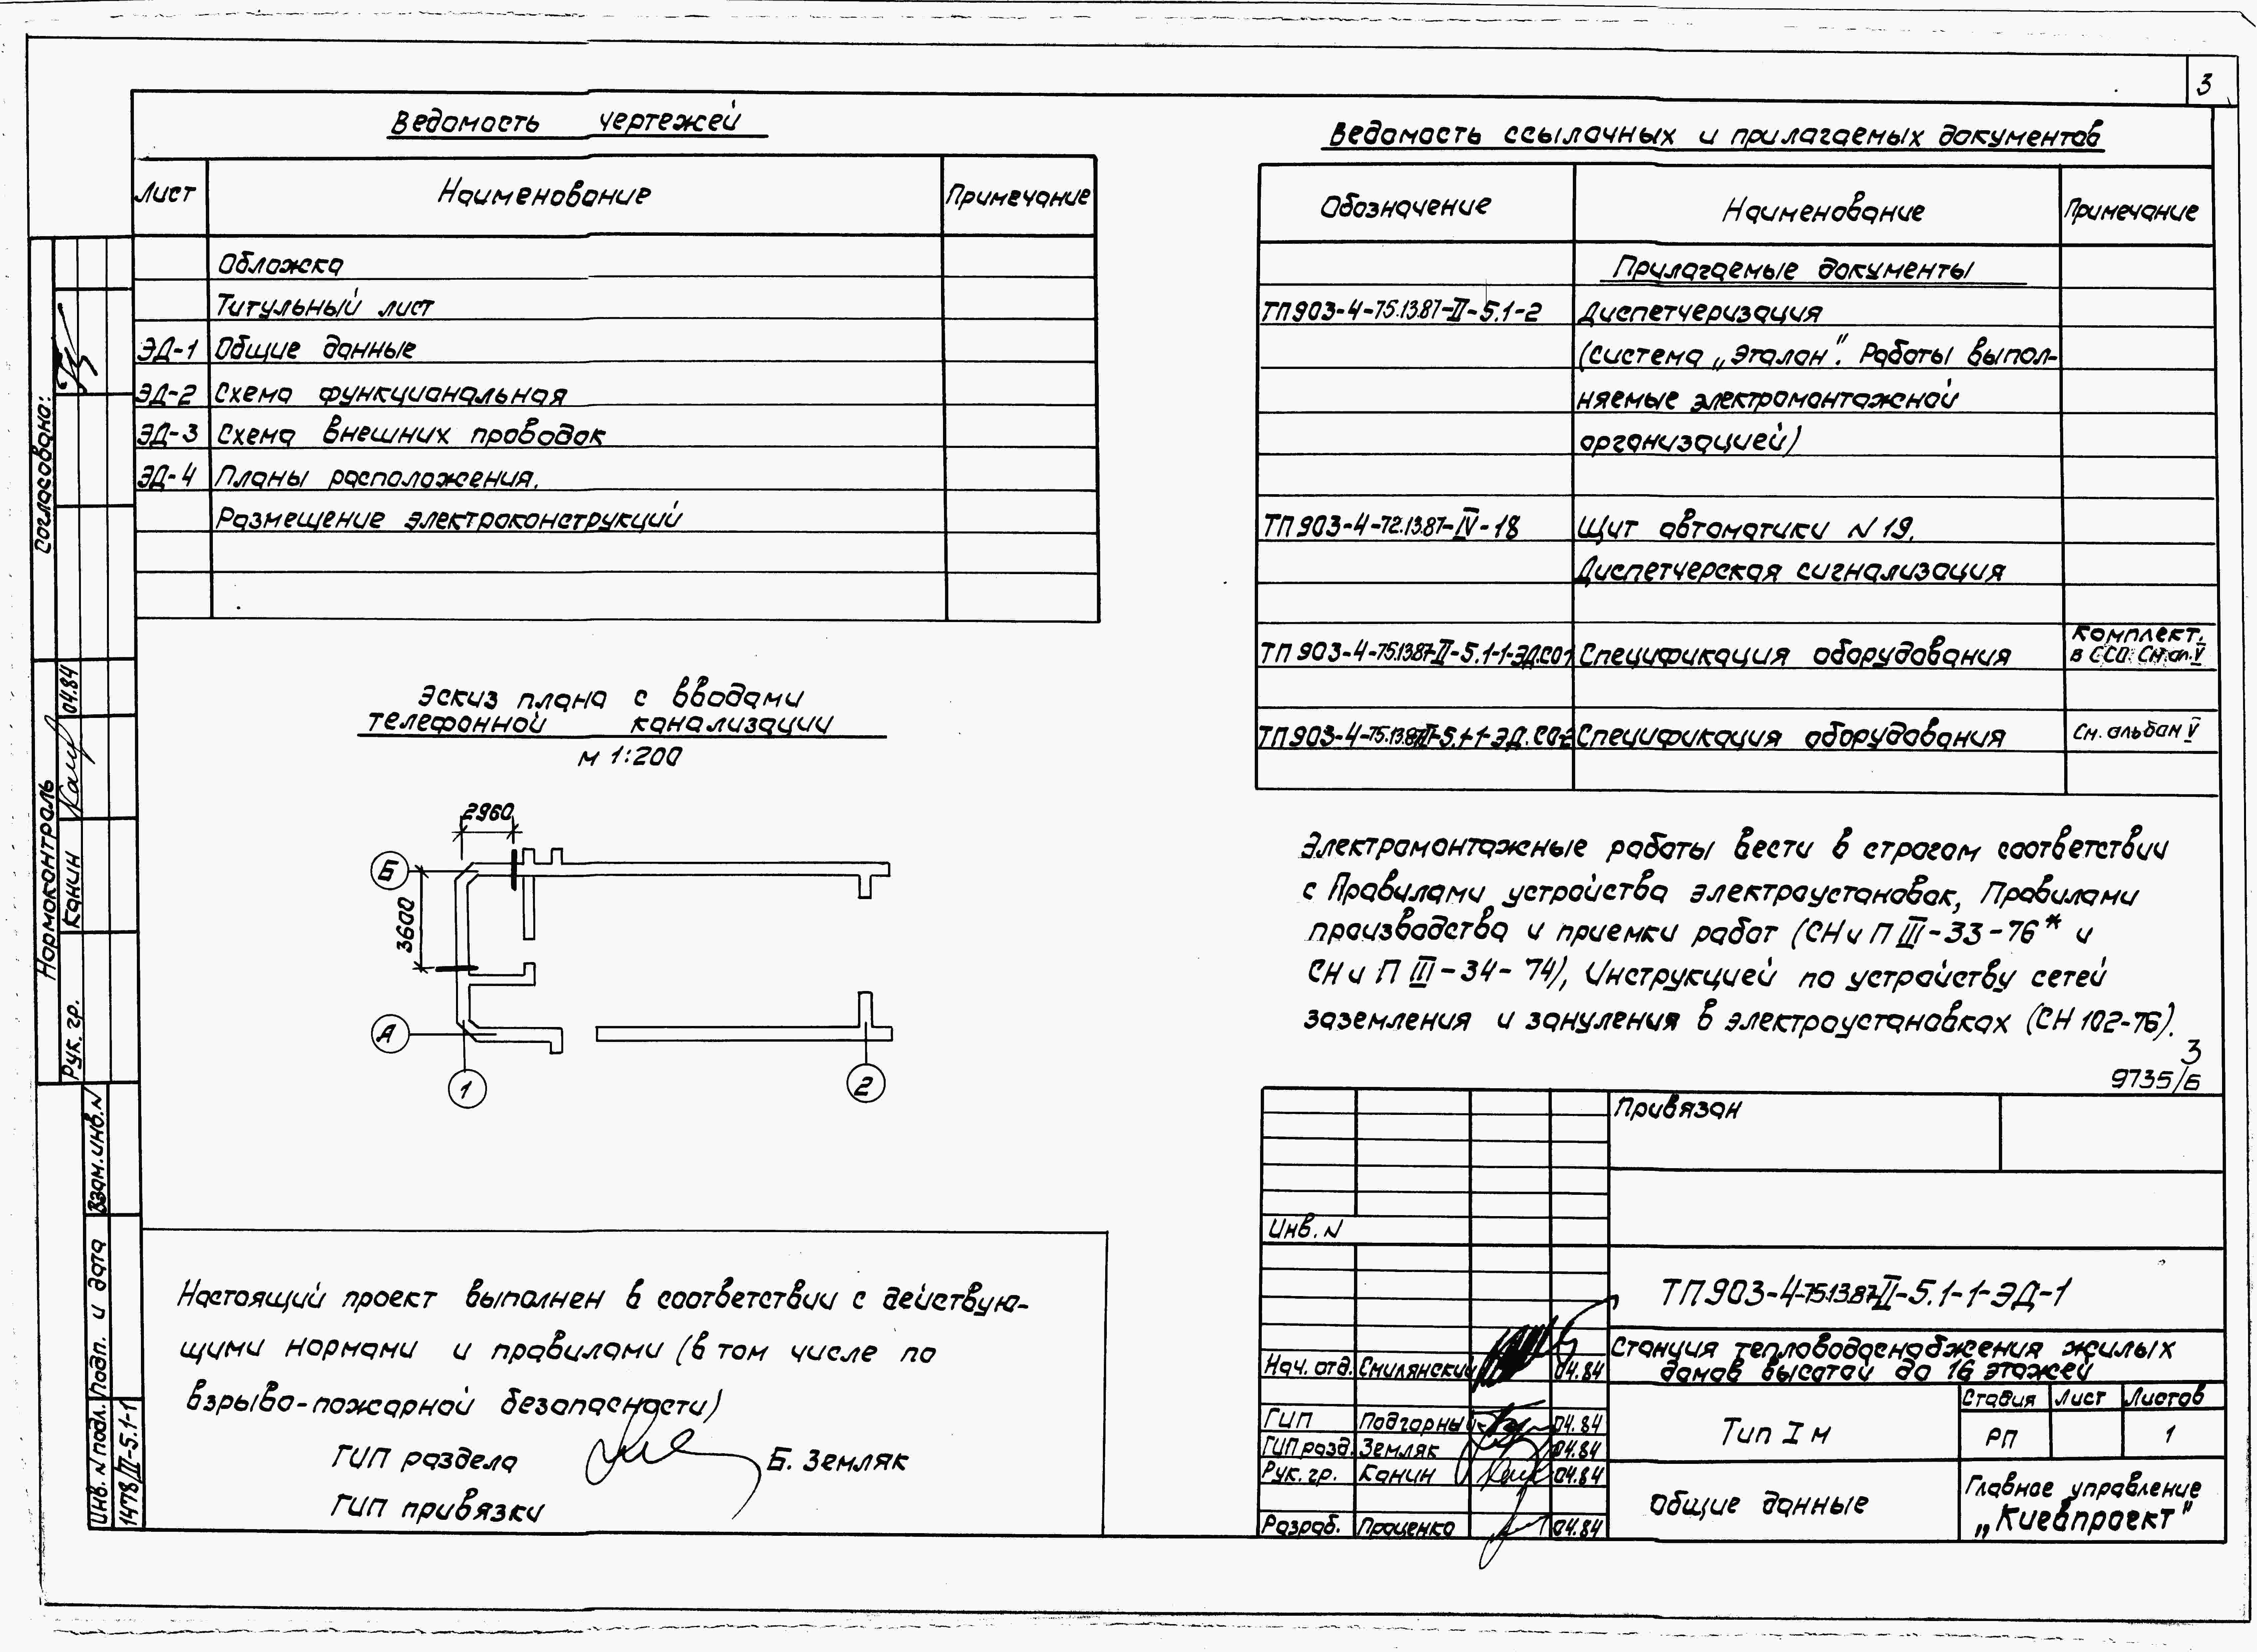 3
Ведомость чертежей
Лист Наименование Примечание
Обложка
Титульный лист
ЭД-1 Общие данные
ЭД-2 Схема функциональная
ЭД-3 Схема внешних проводок
ЭД-4 Планы расположения.
Размещение электроконструкций
Ведомость ссылочных и прилагаемых документов
Обозначение Наименование Примечание
Прилагаемые документы
ТП903-4-75.13.87-II-5.1-2 Диспетчеризация
(система „Эталон". Работы выпол-
няемые электромонтажной
организацией)
ТП903-4-72.13.87-IV-18 Щит автоматики N 19.
Диспетчерская сигнализация
ТП 903-4-75.13.87-II-5.1-1-ЭД.СО1 Спецификация оборудования Комплект.
в ССО См.ал.V
ТП903-4-75.13.87-II-5.1-1-ЭД.СО-2 Спецификация оборудования См. альбом V
Эскиз плана с вводами
телефонной канализации
М 1:200
2960
Б
3600
А
1
2
Электромонтажные работы вести в строгом соответствии
с Правилами устройства электроустановок, Правилами
производства и приемки работ (СНиП III-33-76* и
СНиП III-34-74), Инструкцией по устройству сетей
заземления и зануления в электроустановках (СН 102-76).
3
9735/6
Настоящий проект выполнен в соответствии с действую-
щими нормами и правилами (в том числе по
взрыво-пожарной безопасности)
ГИП раздела Б. Земляк
ГИП привязки
Привязан
Инв. N
ТП903-4-75.13.87-II-5.1-1-ЭД-1
Станция тепловодоснабжения жилых
домов высотой до 16 этажей
Нач. отд. Смилянский 04.84
ГИП Подгорный 04.84
ГИП разд. Земляк 04.84
Рук. гр. Канин 04.84
Разраб. Проценко 04.84
Тип I м
Стадия Лист Листов
РП 1
Общие данные
Главное управление
„Киевпроект"
Согласовано:
Нормоконтроль
Рук. гр. Канин 04.84
Взам.инв.N
Подп. и дата
Инв. N подл.
1478/III-5.1-1